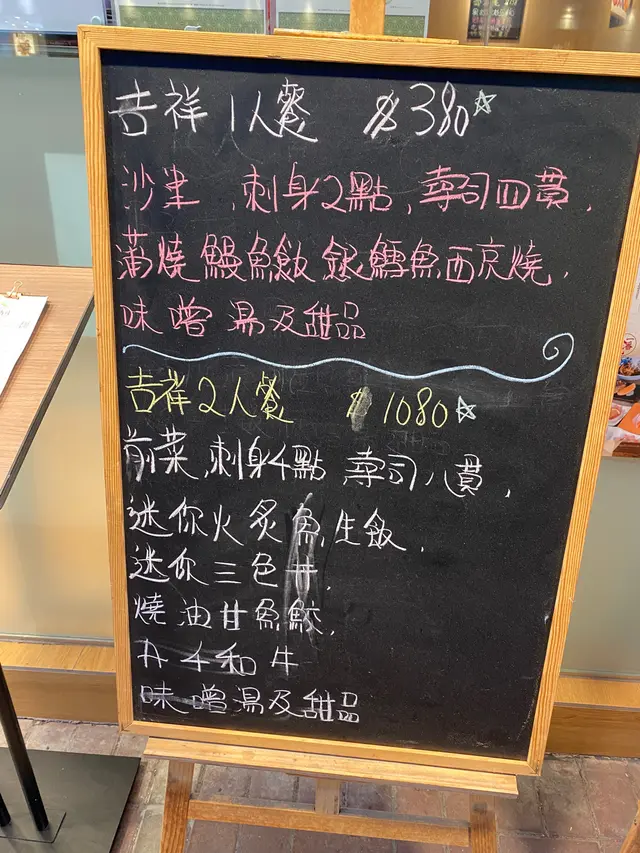 吉祥1人餐 $380☆
沙律,刺身2點,壽司四貫,
蒲燒鰻魚飯 銀鱈魚西京燒,
味噌湯及甜品
吉祥2人餐 $1080☆
前菜,刺身4點 壽司八貫,
迷你火炙魚生飯,
迷你三色丼,
燒油甘魚鮫,
和牛
味噌湯及甜品